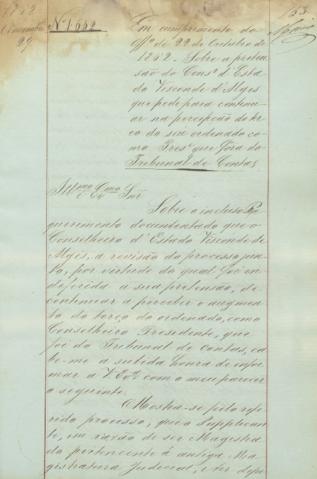 1862
Novembro
29
Nº 1662
Em cumprimento do
Offº de 22 de Outubro de
1862. Sobre a preten-
são do Consº d'Esta-
do Visconde d'Algés
que pede para continu-
ar na percepção do ter-
ço do seu ordenado co-
mo Presº que fôra do
Tribunal de Contas
Illmo e Exmo Snr
Sobre o incluso Re-
querimento documentado que o
Conselheiro d'Estado Visconde de
Algés, a revisão do processo jun-
to, por virtude do qual foi in-
deferida a sua pretensão, de
continuar a perceber o augmen-
to do terço do ordenado, como
Conselheiro Presidente, que
foi do Tribunal de Contas, ca-
be-me a subida honra de infor-
mar a V. Exª com o meu parecer
o seguinte.
Mostra-se pelo refe-
rido processo, que o Supplican-
te, em razão de ser Magistra-
do pertencente á antiga Ma-
gistratura Judicial, e ter depo